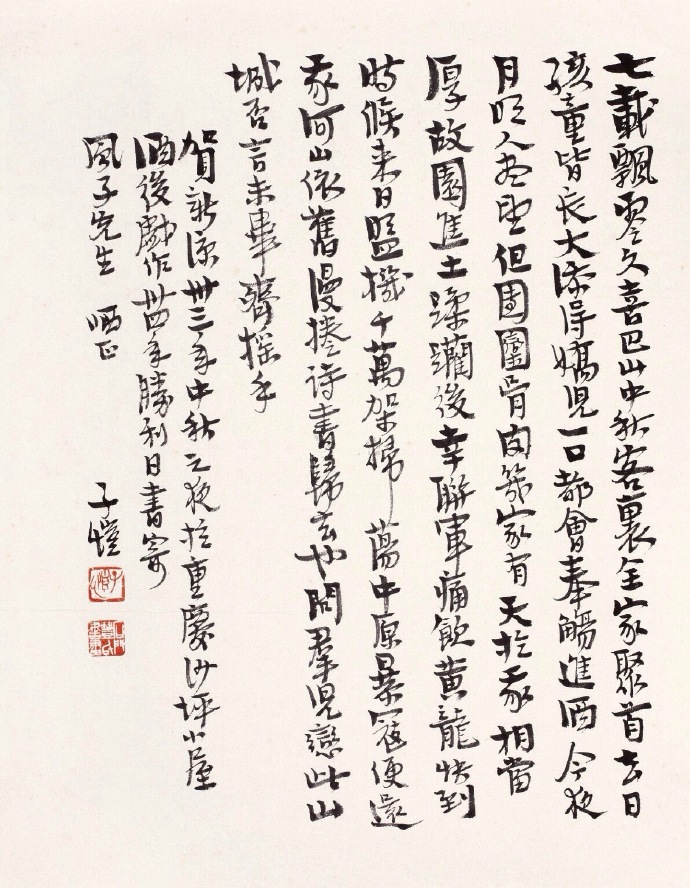 七載飄零久喜巴山中秋客裏全家聚首去日
孩童皆長大添得嬌兒一口都會奉觴進酒今夜
月明人盡望但團圞骨肉幾家有天於我相當
厚故園焦土蹂躪後幸聯軍痛飲黃龍快到
時候來日盟機千萬架掃蕩中原暴寇便還
我河山依舊漫捲詩書歸去也問羣兒戀此山
城否言未畢齊搖手
賀新涼卅三年中秋之夜於重慶沙坪小屋
酒後戲作卅四年勝利日書寄
風子先生 哂正 子愷